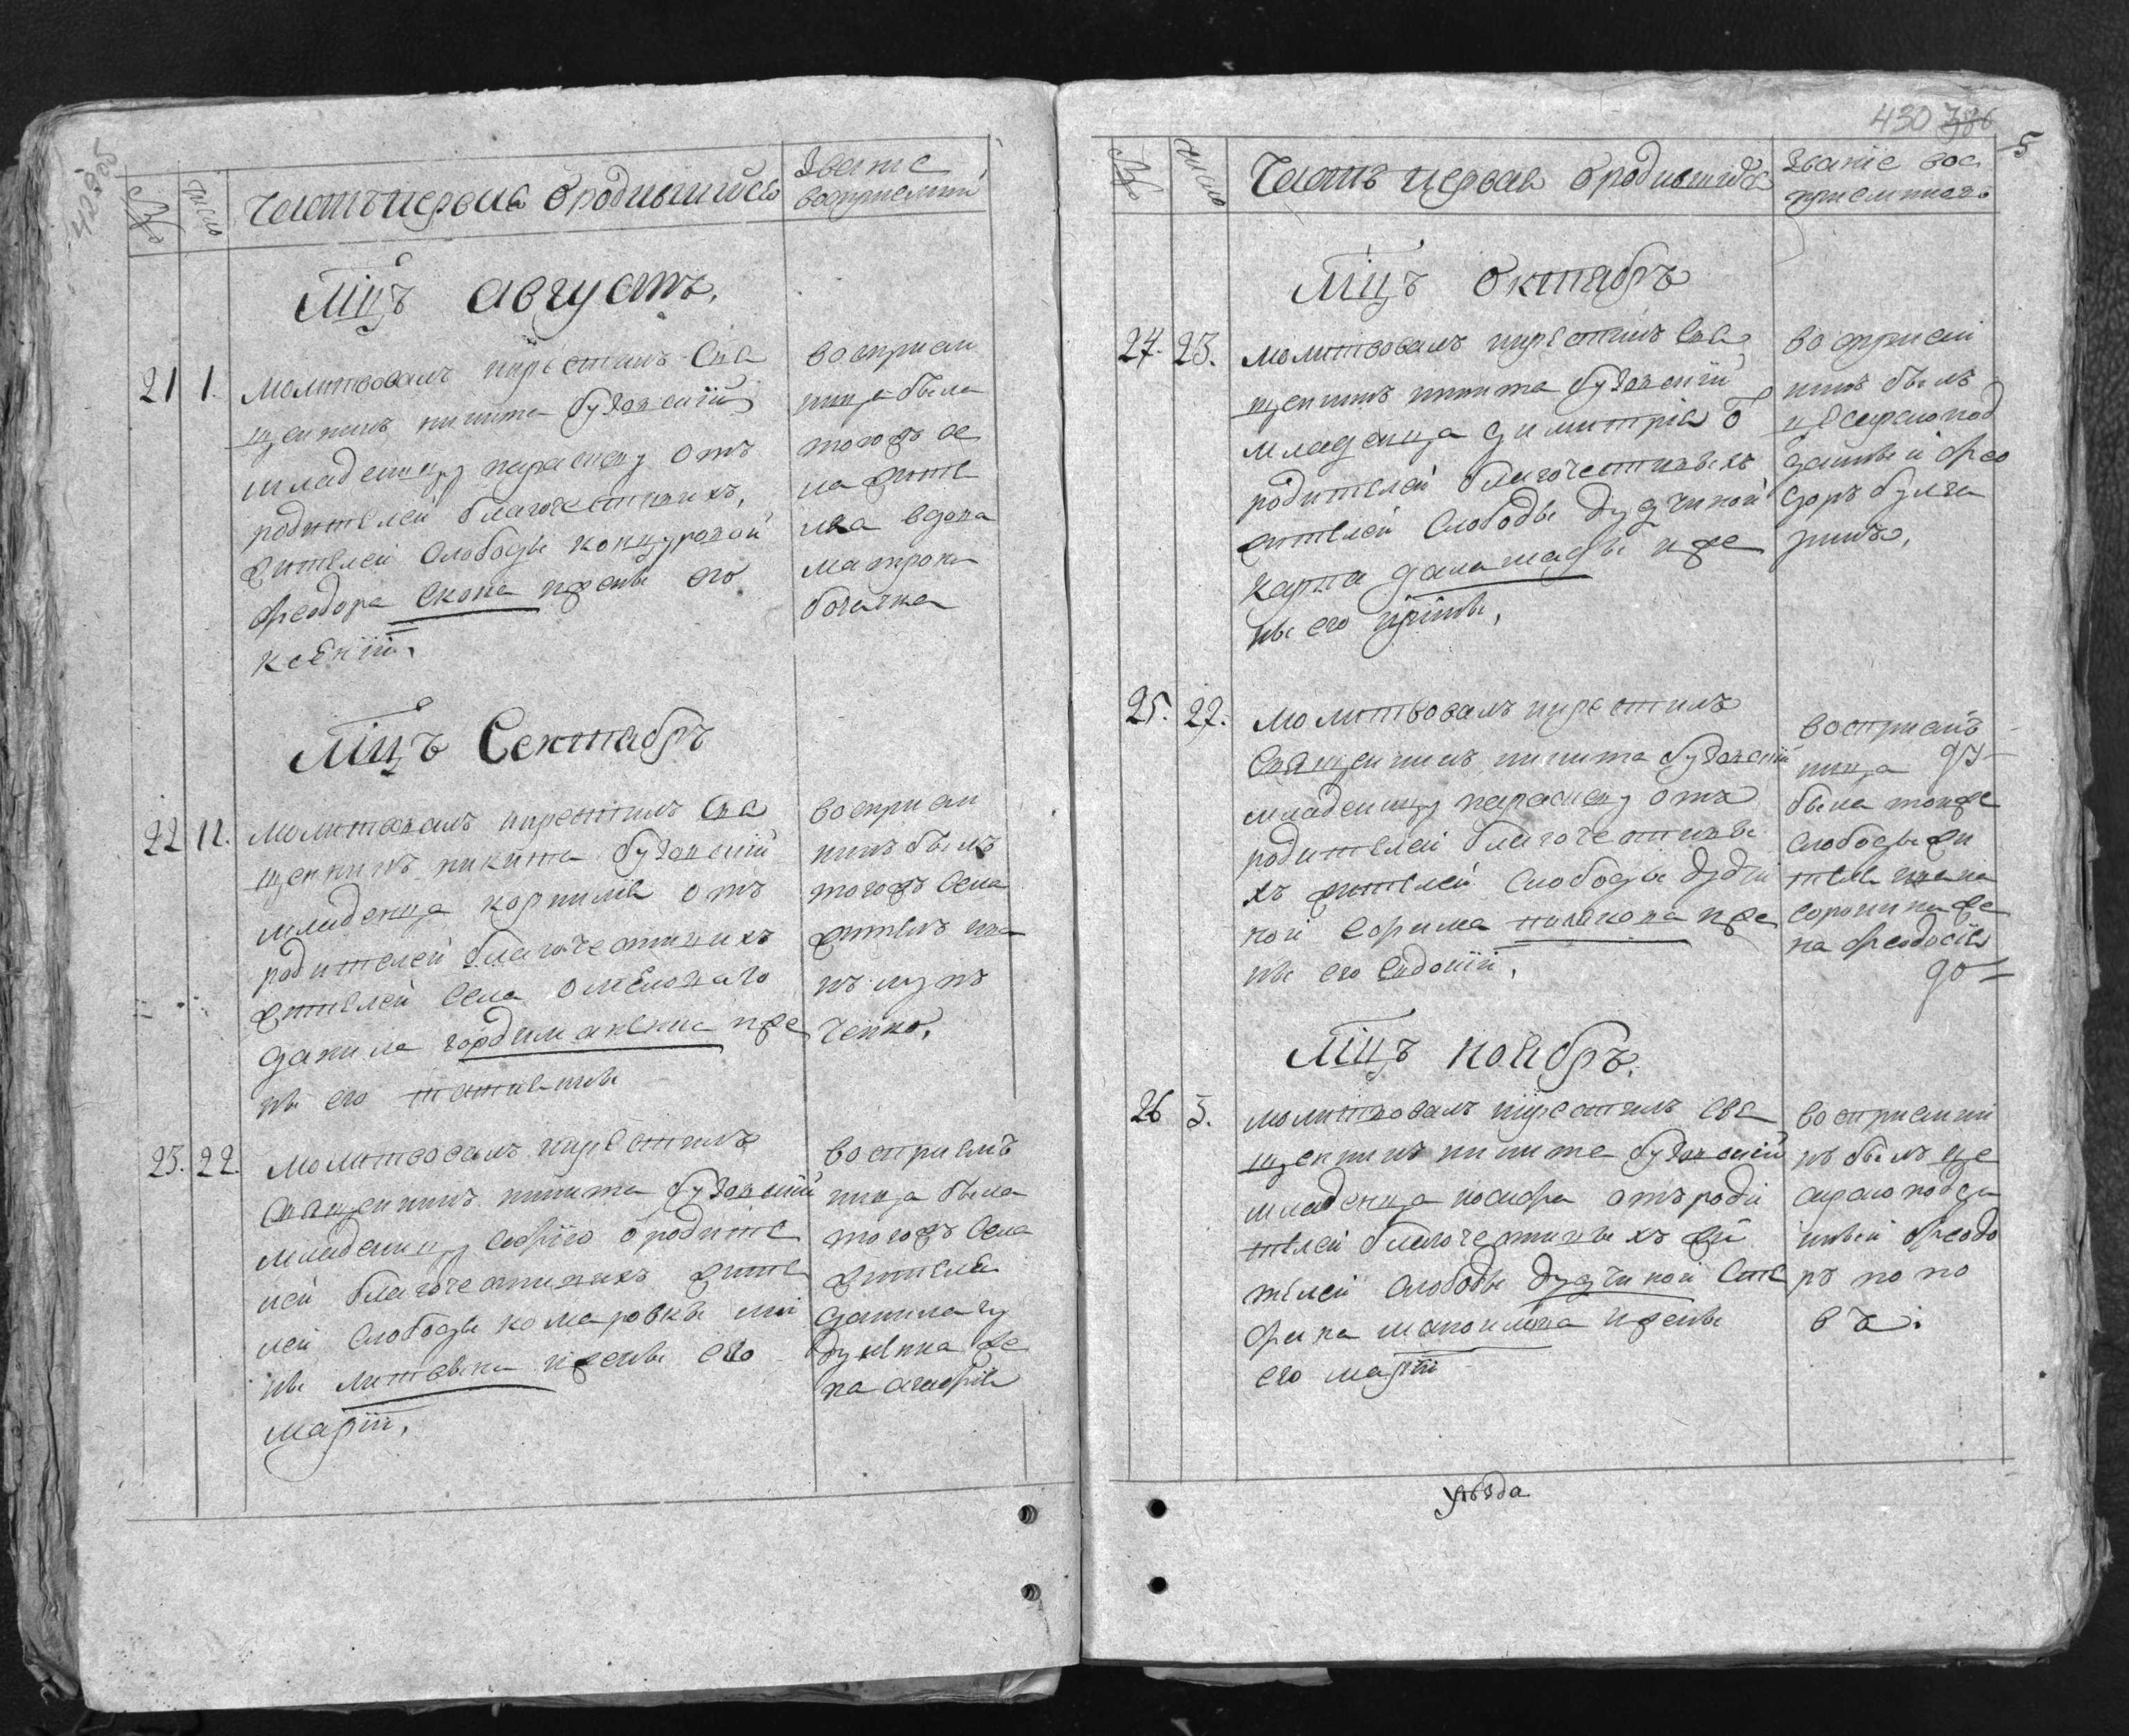 №
число
Часть первая о родившихся
Званіе
восприемни
Мцъ августъ.
21 1. молитвовалъ икрестилъ Свя
щенникъ никита будянский
младеницу параскеву отъ
родителей благочестивихъ,
жителей Слободы концуровой
феодора скока ижены его
ксенiи.
восприем
ница была
тогожъ се
ла жите
лка вдова
матрона
Мцъ Сентябръ
22 12. молитвовалъ икрестилъ Свя
щенникъ никита будянский
младенца корнилiя отъ
родителей благочестивихъ
жителей Села омеловаго
данила иже
ны его татияны
восприем
никъ былъ
тогожъ села
житель ива
нъ
ченко,
23. 22. молитвовалъ икрестилъ
Священникъ никита будянский
младеницу софiю о родите
лей благочестивихъ жите
лей Слободы комаровки
литвина ижены его
марiи,
восприемъ
ница была
тогожъ Села
жителя
данила
же
на агафiя
430 386
5
№
число
Часть первая о родившихся
Званіе вос
приемниковъ
Мцъ Октябръ
24. 23. молитвовалъ икрестилъ Свя
щенникъ никита будянский
младенца димитрiя о
родителей благочестивыхъ
жителей Слободы дудчиной
карпа иже
ны его ирины,
восприем
никъ былъ
подданый фео
доръ
25. 27. молитвовалъ икрестилъ
Священникъ никита будянский
младеницу параскеву отъ
родителей благочестивы
хъ жителей Слободы дудчи
ной ефима иже
ны его Евдокiи,
восприемъ
ница
была тоиже
Слободы жи
теля ивана
сороки же
на феодосiя
Мцъ ноябръ.
26 3. молитвовалъ икрестилъ свя
щенникъ никита будянский
младенца иосифа отъ роди
телей благочестивыхъ жи
телей Слободы дудчиной Сте
фана ижены
его марiи
восприемни
къ былъ
феодо
ръ попо
въ.
уѣзда